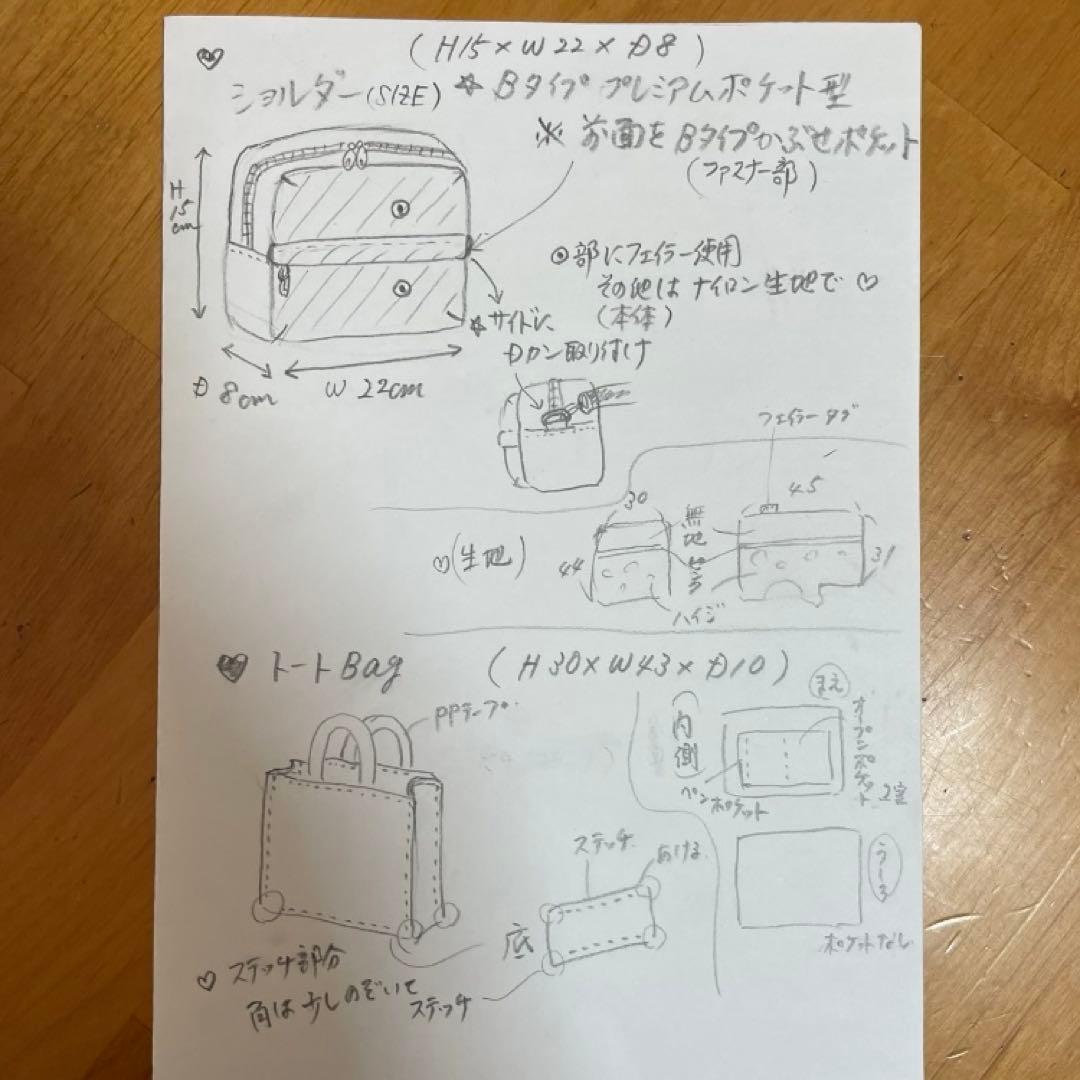 ♥ (H15×W22×D8)
ショルダー(SIZE) ☆ Bタイプ プレミアムポケット型
※ 前面をBタイプかぶせポケット
(ファスナー部)
H 15cm
D 8cm
W 22cm
◎部にフェイラー使用
その他はナイロン生地で♡
(本体)
☆サイドに
Dカン取り付け
フェイラータグ
♡(生地)
30
44
無地
45
31
ハイジ
♥ トートBag (H30×W43×D10)
PPテープ
内側
まえ
オープンポケット 2室
ペンポケット
うしろ
ポケットなし
ステッチ
あける
底
♡ ステッチ部分
角は少しのぞいて
ステッチ